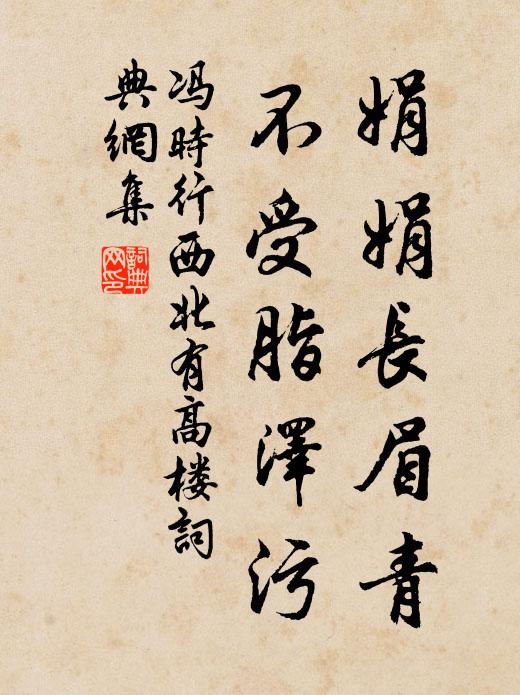 娟娟長眉青
不受脂澤污
馮時行西北有高楼詞
典網集
詞典
网印